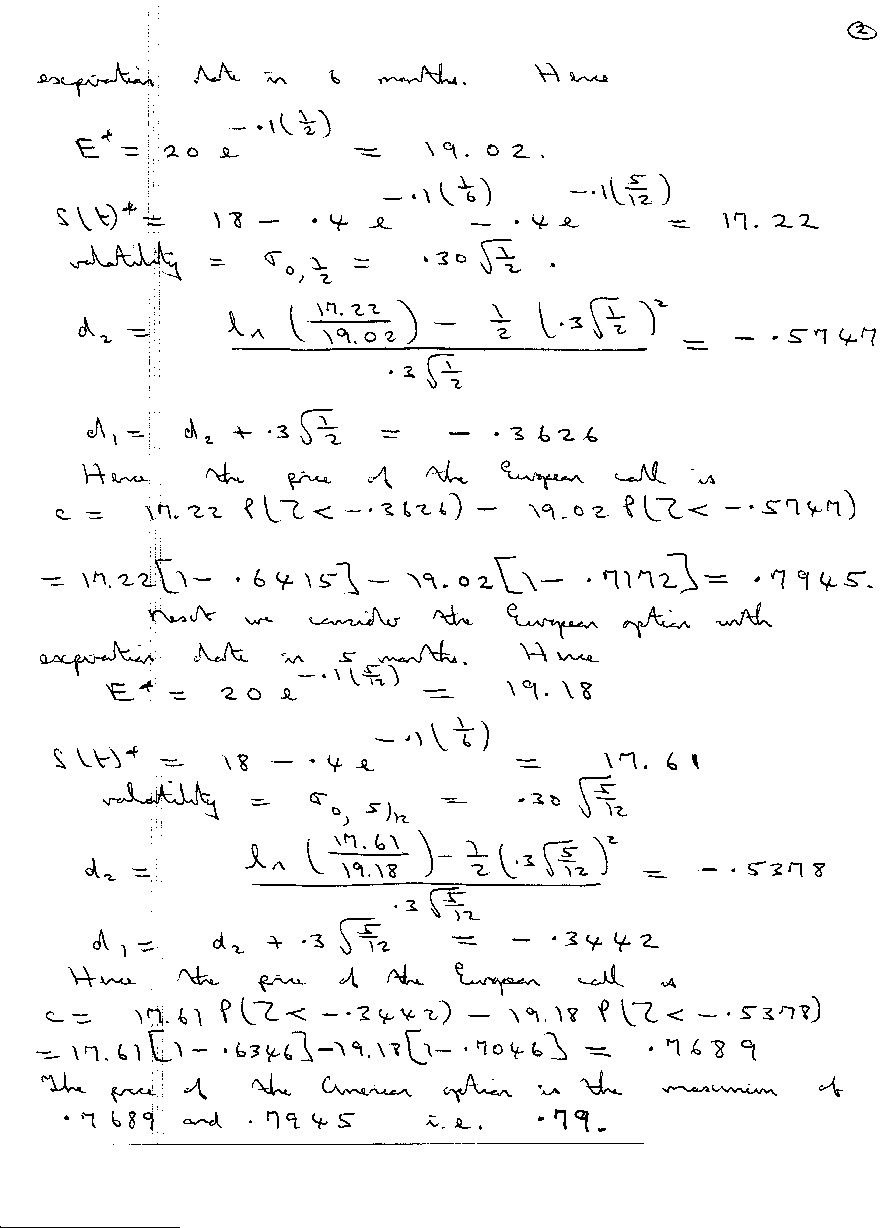 ②
expiration date in 6 months. Hence
E* = 20 e^{-.1(1/2)} = 19.02.
S(t)* = 18 - .4 e^{-.1(1/6)} - .4 e^{-.1(5/12)} = 17.22
volatility = σ_{0,1/2} = .30 √(1/2) .
d₂ = [ln (17.22/19.02) - 1/2 (.3√(1/2))²] / (.3√(1/2)) = - .5747
d₁ = d₂ + .3√(1/2) = - .3626
Hence the price of the European call is
c = 17.22 P(Z < -.3626) - 19.02 P(Z < -.5747)
= 17.22[1 - .6415] - 19.02[1 - .7172] = .7945.
Next we consider the European option with
expiration date in 5 months. Hence
E* = 20 e^{-.1(5/12)} = 19.18
S(t)* = 18 - .4 e^{-.1(1/6)} = 17.61
volatility = σ_{0,5/12} = .30 √(5/12)
d₂ = [ln (17.61/19.18) - 1/2 (.3√(5/12))²] / (.3√(5/12)) = - .5378
d₁ = d₂ + .3√(5/12) = - .3442
Hence the price of the European call is
c = 17.61 P(Z < -.3442) - 19.18 P(Z < -.5378)
= 17.61[1 - .6346] - 19.18[1 - .7046] = .7689
The price of the American option is the maximum of
.7689 and .7945 i.e. .79.